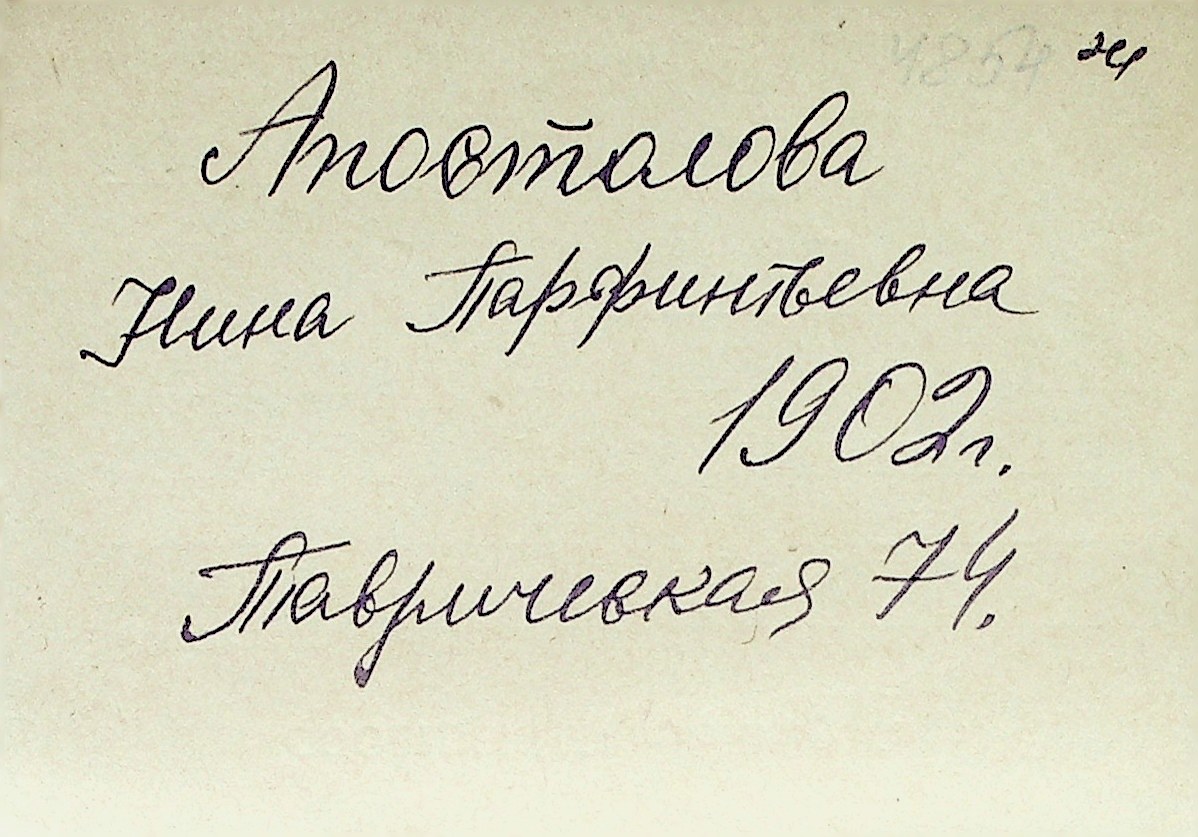 4854
Апостолова
Нина Парфинтьевна
1902г.
Таврическая 74.